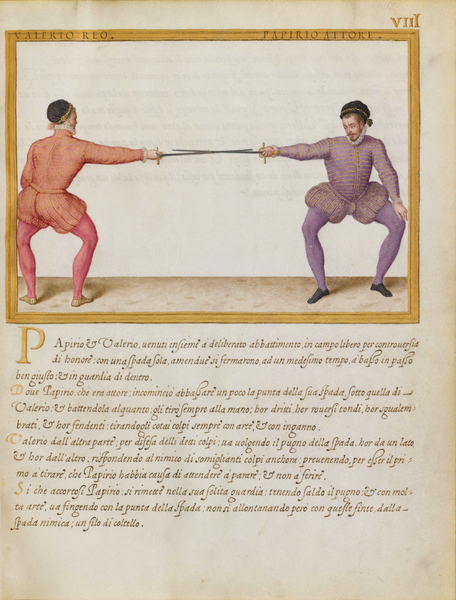 VIII
VALERIO REO.
PAPIRIO ATTORE.
PApirio, & Valerio, venuti insieme à deliberato abbattimento, in campo libero per controversia
di honore; con una spada sola, amendue si fermarono, ad un medesimo tempo, à basso in passo
ben giusto; & in guardia di dentro.
Doue Papirio, che era attore; incominciò abbassare un poco la punta della sua spada, sotto quella di
Valerio; & battendola alquanto; gli tirò sempre alla mano; hor dritti, hor roversi tondi, hor squalem-
brati, & hor fendenti: tirandogli cotai colpi sempre con arte, & con inganno.
Valerio dall'altra parte; per difesa delli detti colpi; ua uolgendo il pugno della spada, hor da un lato
& hor dall'altro; respondendo al nimico di somiglianti colpi anchora; prevenendo, per esser il pri-
mo à tirare, che Papirio habbia causa di attendere à parare; & non à ferire.
Si che accortosi Papirio; si rimette nella sua solita guardia; tenendo saldo il pugno; & con mol-
ta arte, ua fingendo con la punta della spada; non si allontanando però con queste finte, dalla
spada nimica; un filo di coltello.